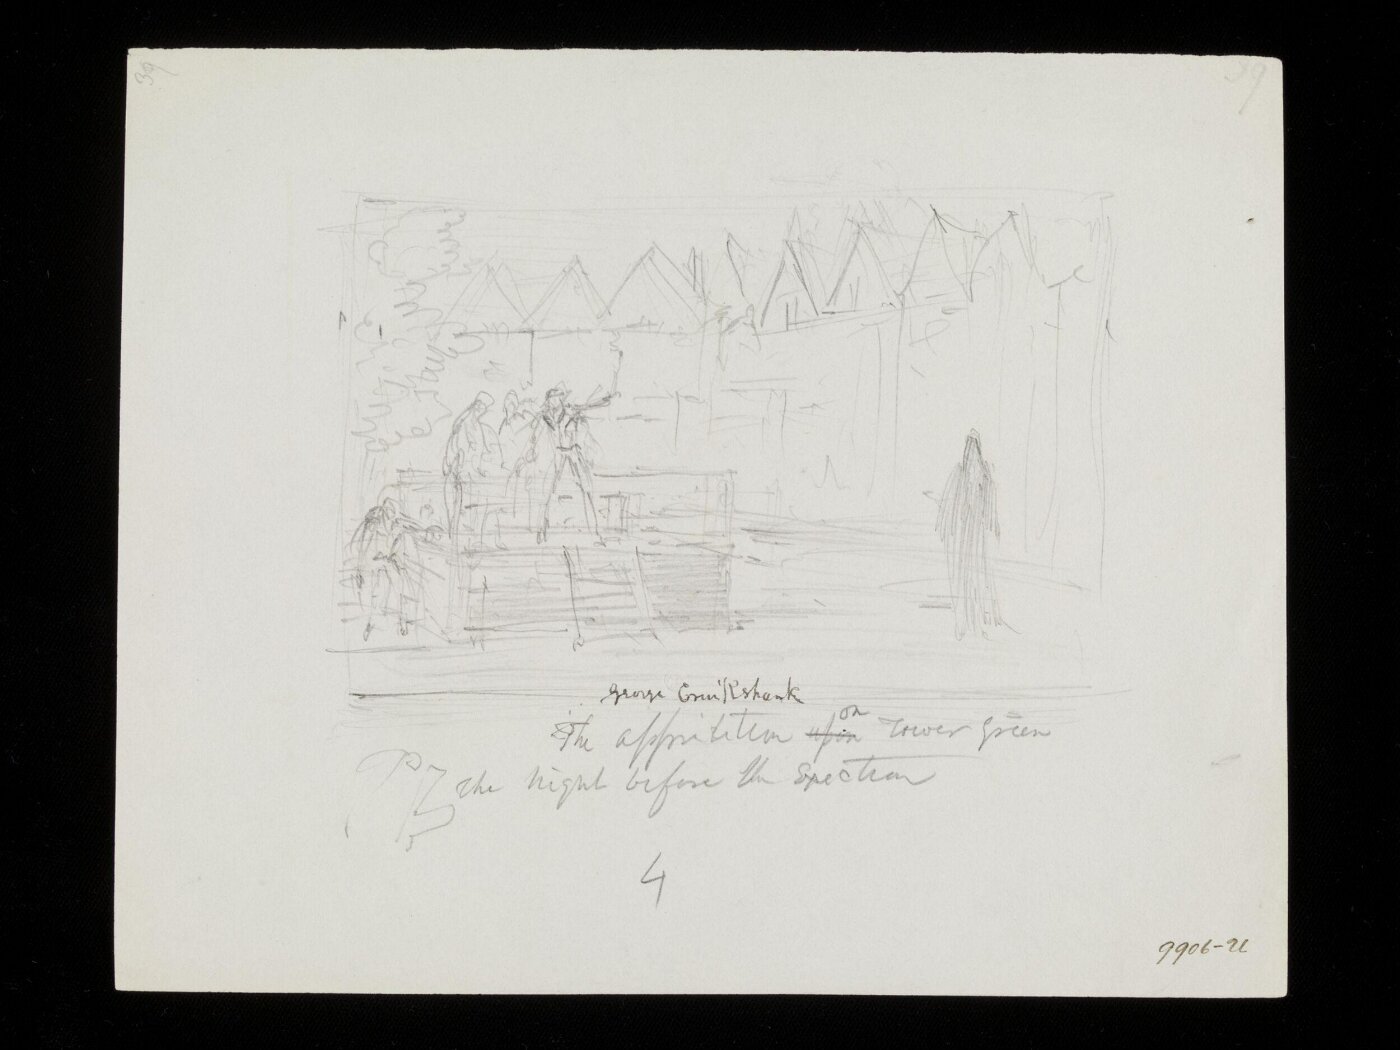 39
39
George Cruikshank
The apparition upon on Tower Green
the night before the Execution
4
9906-21